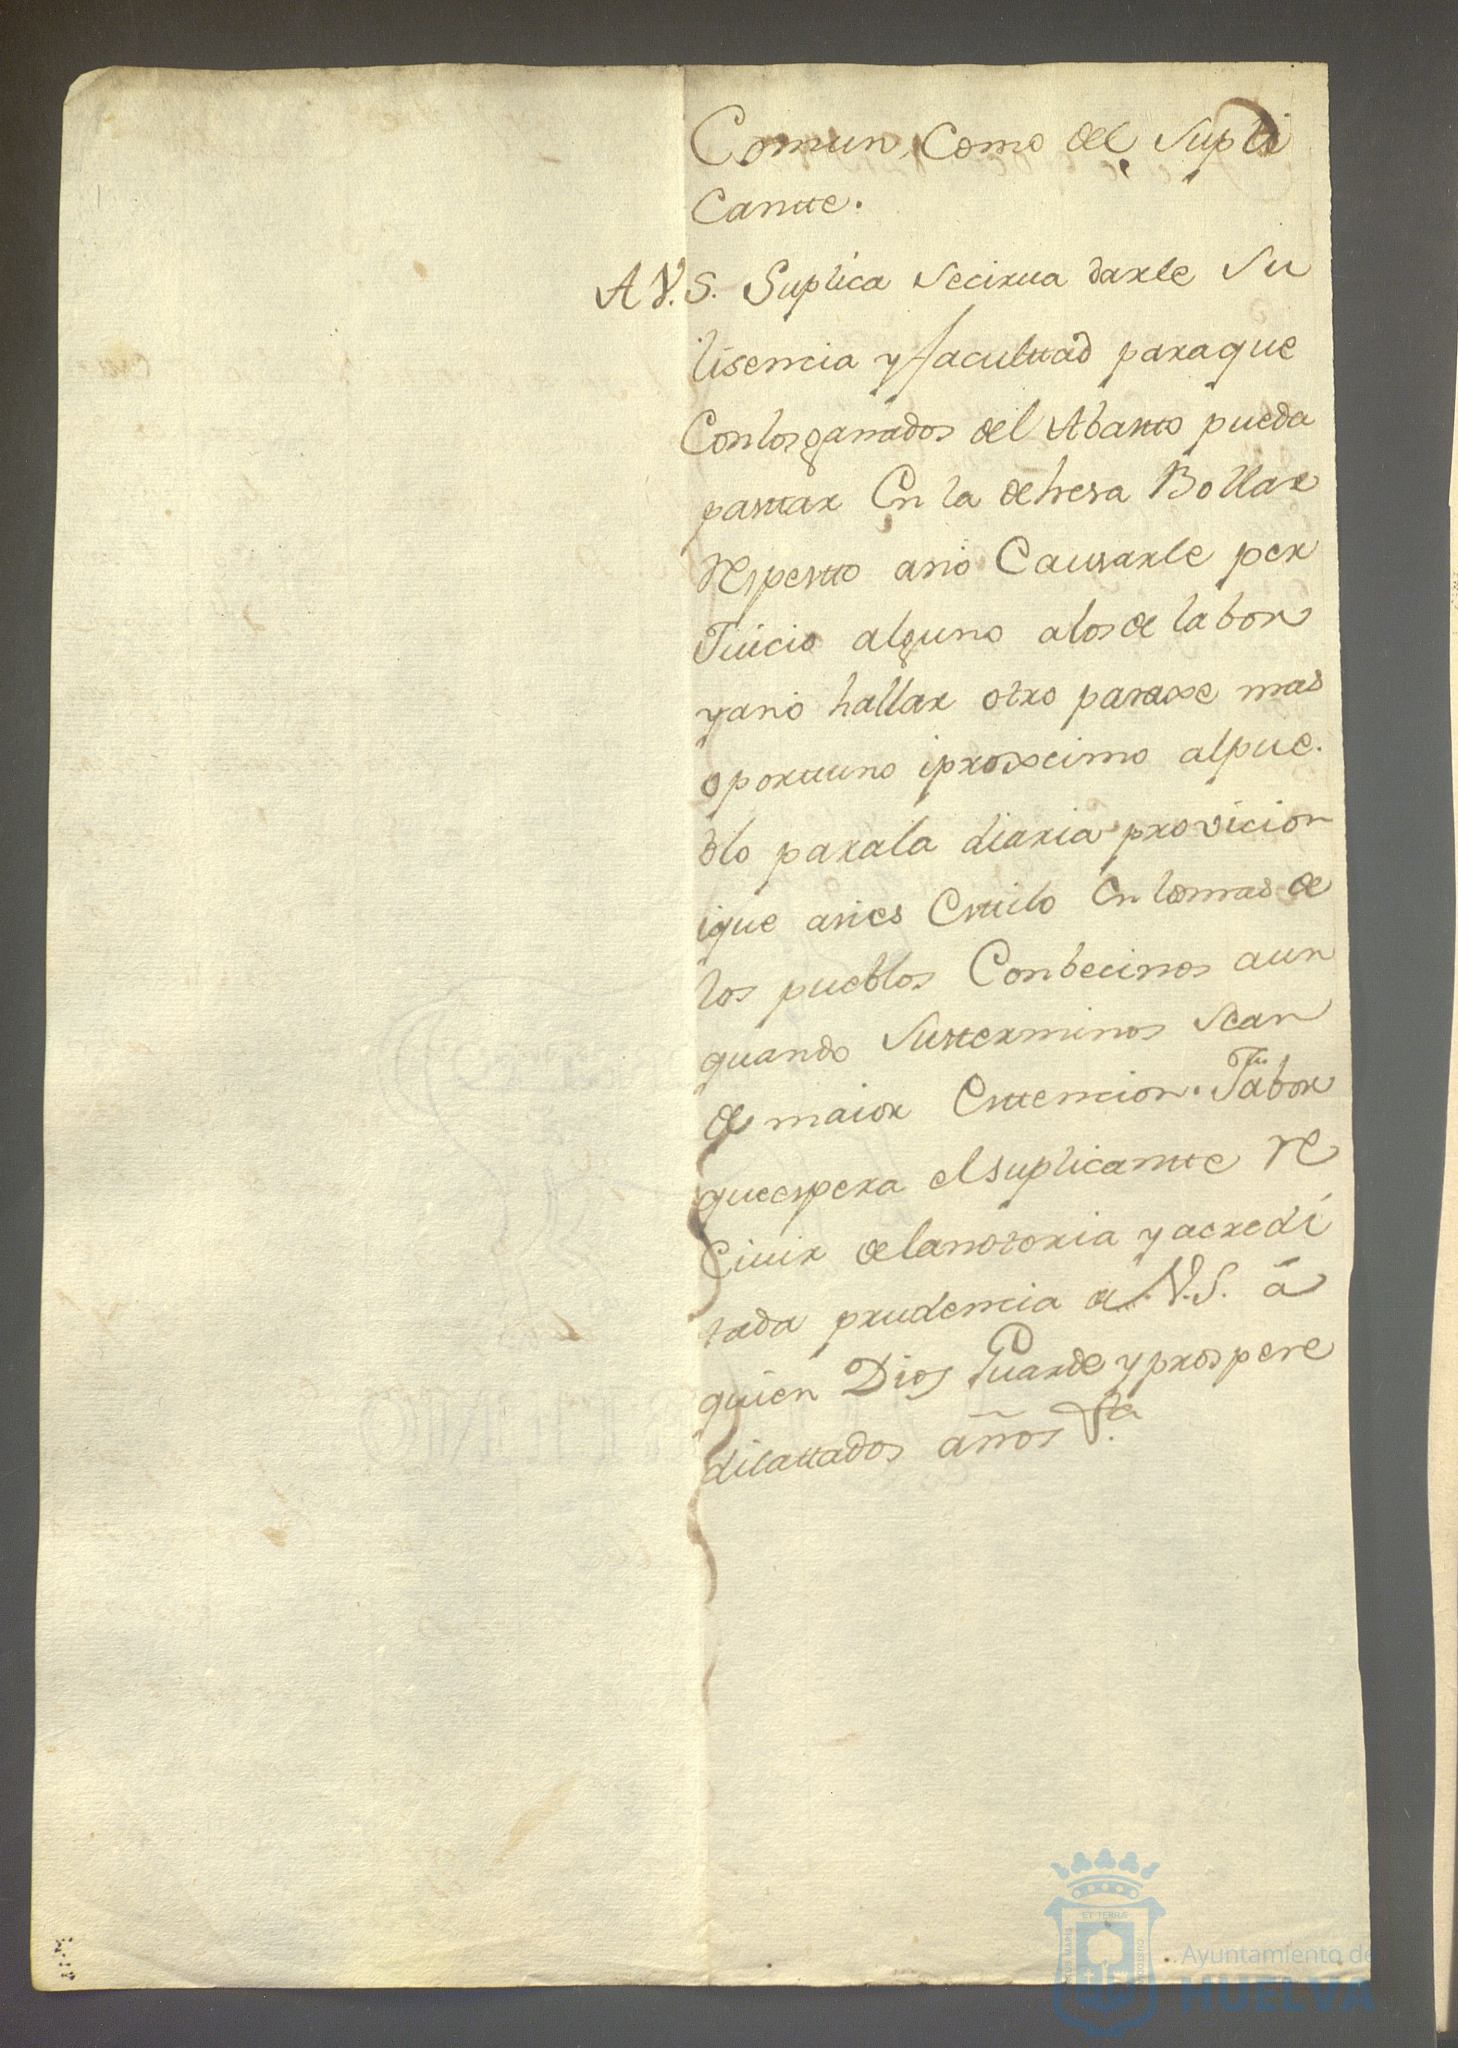 Comun, Como del Supli
Cantte.
A V.S. Suplica Secirua darle Su
lisencia y facultad paraque
Conlosganados del Abastto pueda
pasttar En la dehesa Bollar
Respectto anó Causarle per
Juicio alguno alosde labor
yanó hallar otro paraxe mas
oporttuno iproxcimo alpue.
blo parala diaria provicion
ique asies Esttilo En lomas de
los pueblos Conbecinos aun
quando Susterminos sean
de maior Esttencion. fabor
queespera elsuplicantte Re
Civir delanotoria yacredi
tada prudencia de V.S. á
quien Dios Guarde yprospere
dilattados años
Ayuntamiento de
HUELVA